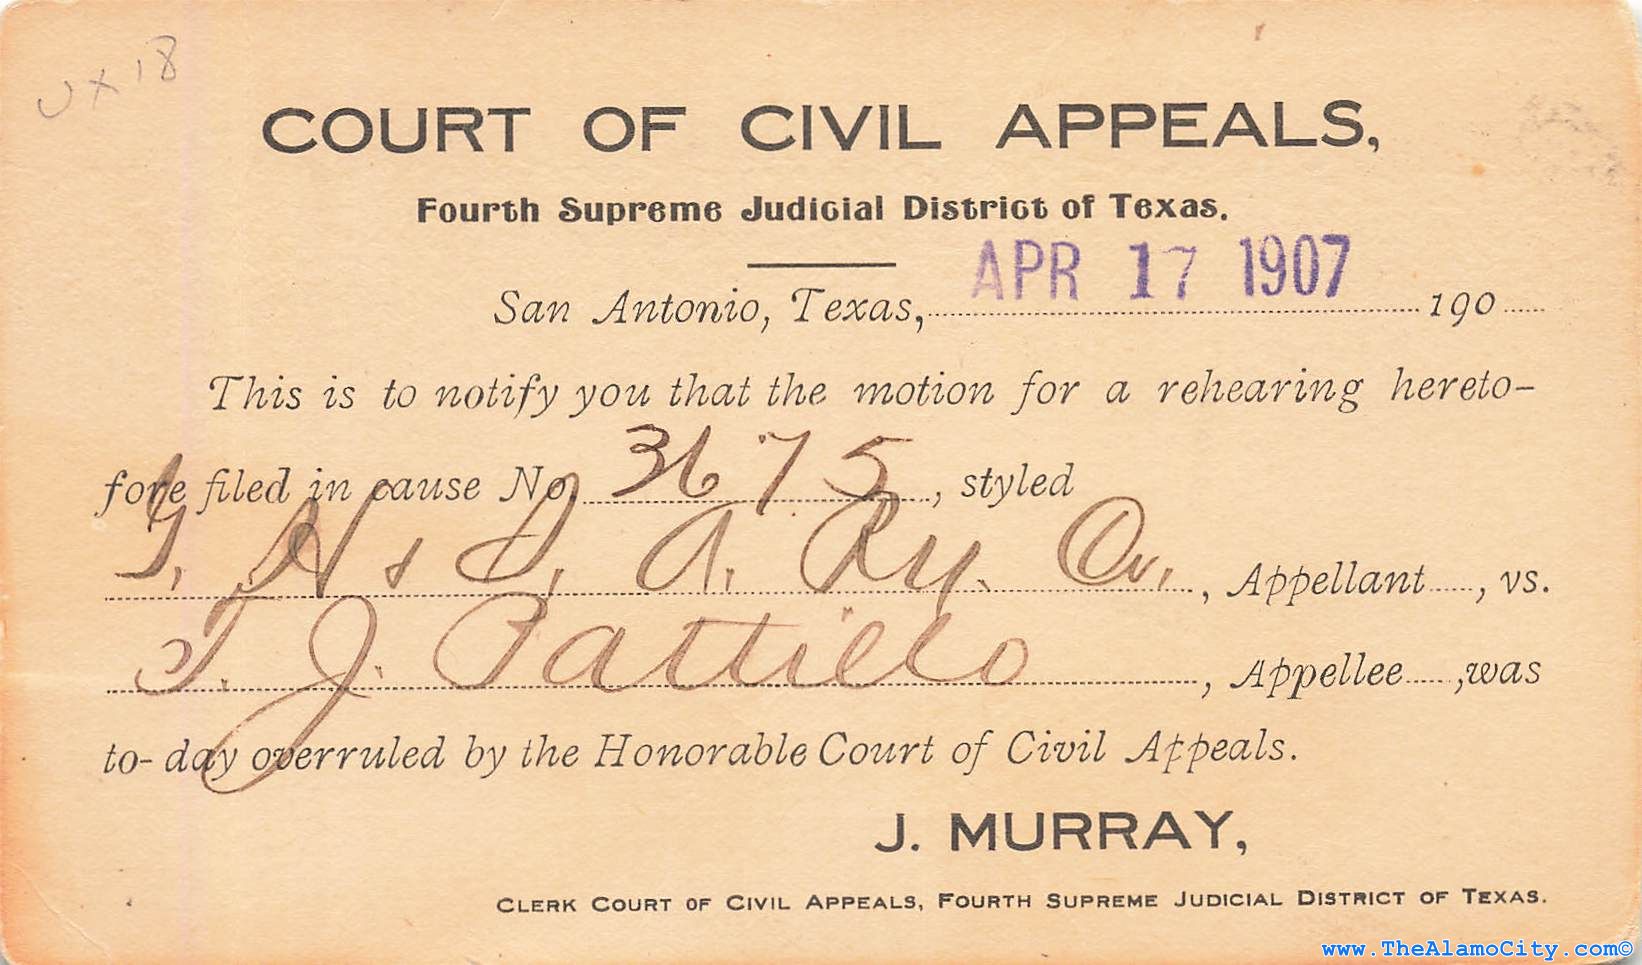 UX18
COURT OF CIVIL APPEALS,
Fourth Supreme Judicial District of Texas.
San Antonio, Texas, APR 17 1907 190
This is to notify you that the motion for a rehearing hereto-
fore filed in cause No. 3675, styled
I. & G. N. Ry. Co., Appellant, vs.
T. J. Pattillo, Appellee, was
to-day overruled by the Honorable Court of Civil Appeals.
J. MURRAY,
CLERK COURT OF CIVIL APPEALS, FOURTH SUPREME JUDICIAL DISTRICT OF TEXAS.
www.TheAlamoCity.com©